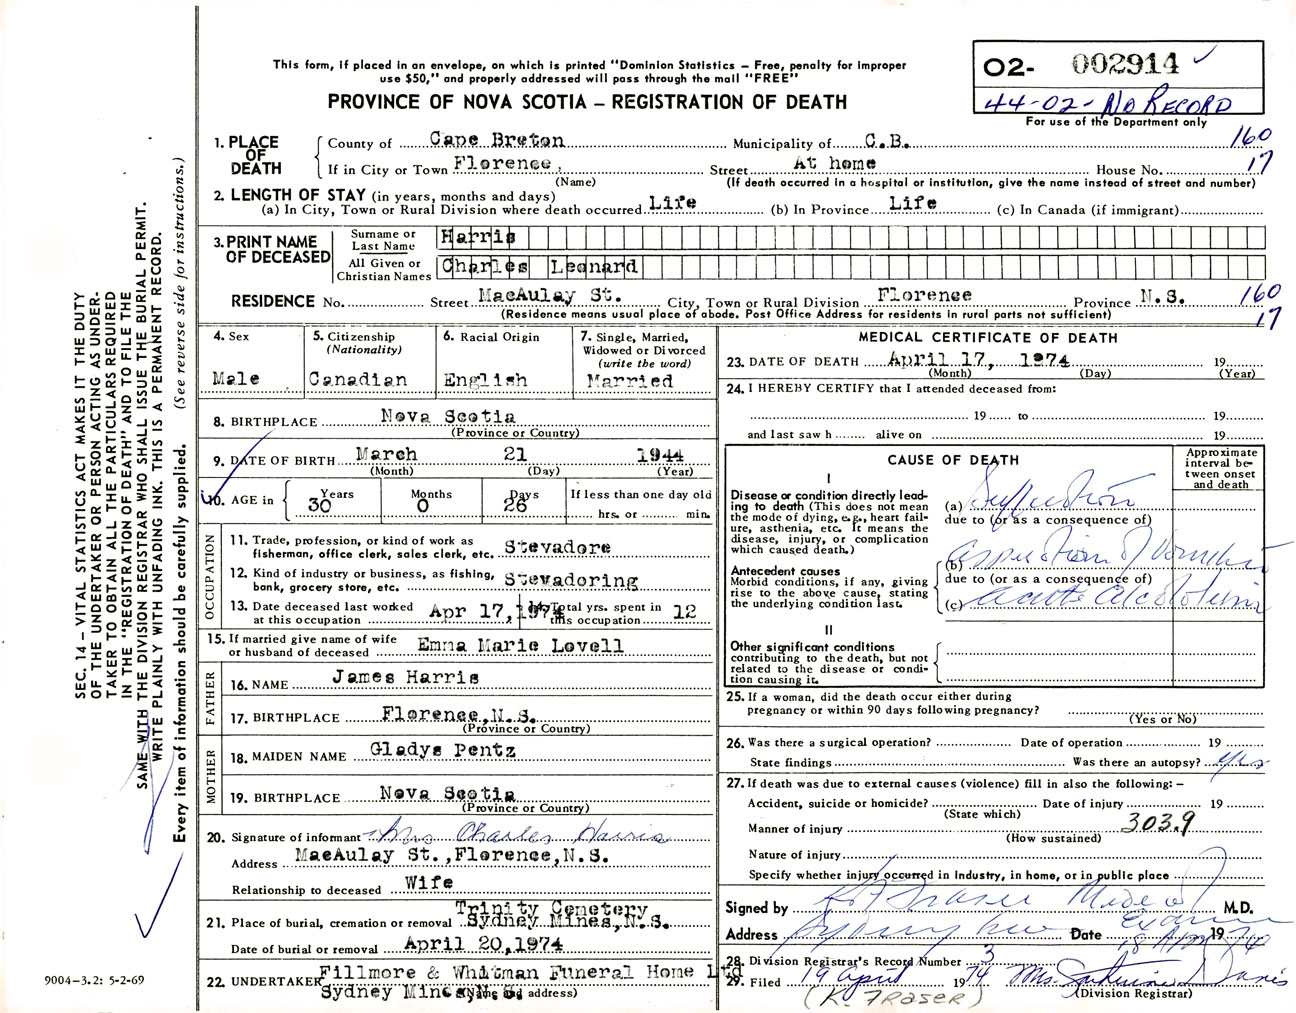 This form, if placed in an envelope, on which is printed "Dominion Statistics – Free, penalty for improper
use $50," and properly addressed will pass through the mail "FREE"
PROVINCE OF NOVA SCOTIA – REGISTRATION OF DEATH
O2- 002914 ✓
44-02- No RECORD
For use of the Department only
SEC. 14 – VITAL STATISTICS ACT MAKES IT THE DUTY
OF THE UNDERTAKER OR PERSON ACTING AS UNDER-
TAKER TO OBTAIN ALL THE PARTICULARS REQUIRED
IN THE "REGISTRATION OF DEATH" AND TO FILE THE
SAME WITH THE DIVISION REGISTRAR WHO SHALL ISSUE THE BURIAL PERMIT.
WRITE PLAINLY WITH UNFADING INK. THIS IS A PERMANENT RECORD.
Every item of information should be carefully supplied. (See reverse side for instructions.)
1. PLACE OF DEATH
County of Cape Breton Municipality of C.B. 160
If in City or Town Florence, Street At home House No. 17
(Name) (If death occurred in a hospital or institution, give the name instead of street and number)
2. LENGTH OF STAY (in years, months and days)
(a) In City, Town or Rural Division where death occurred Life (b) In Province Life (c) In Canada (if immigrant)
3. PRINT NAME OF DECEASED
Surname or Last Name Harris
All Given or Christian Names Charles Leonard
RESIDENCE No. Street MacAulay St. City, Town or Rural Division Florence Province N.S. 160
(Residence means usual place of abode. Post Office Address for residents in rural parts not sufficient) 17
4. Sex
Male
5. Citizenship
(Nationality)
Canadian
6. Racial Origin
English
7. Single, Married,
Widowed or Divorced
(write the word)
Married
8. BIRTHPLACE Nova Scotia
(Province or Country)
9. DATE OF BIRTH March 21 1944
(Month) (Day) (Year)
10. AGE in Years 30 Months 0 Days 26 If less than one day old
hrs. or min.
OCCUPATION
11. Trade, profession, or kind of work as
fisherman, office clerk, sales clerk, etc. Stevadore
12. Kind of industry or business, as fishing,
bank, grocery store, etc. Stevadoring
13. Date deceased last worked
at this occupation Apr 17, 1974
Total yrs. spent in
this occupation 12
15. If married give name of wife
or husband of deceased Emma Marie Lovell
FATHER
16. NAME James Harris
17. BIRTHPLACE Florence,N.S.
(Province or Country)
MOTHER
18. MAIDEN NAME Gladys Pentz
19. BIRTHPLACE Nova Scotia
(Province or Country)
20. Signature of informant Mrs Charles Harris
Address MacAulay St.,Florence,N.S.
Relationship to deceased Wife
21. Place of burial, cremation or removal Trinity Cemetery
Sydney Mines,N.S.
Date of burial or removal April 20,1974
22. UNDERTAKER Fillmore & Whitman Funeral Home Ltd
Sydney Mines, N.S. address)
9004–3.2: 5-2-69
MEDICAL CERTIFICATE OF DEATH
23. DATE OF DEATH April 17, 1974 19
(Month) (Day) (Year)
24. I HEREBY CERTIFY that I attended deceased from:
19 to 19
and last saw h alive on 19
CAUSE OF DEATH
Approximate
interval be-
tween onset
and death
I
Disease or condition directly lead-
ing to death (This does not mean
the mode of dying, e.g., heart fail-
ure, asthenia, etc. It means the
disease, injury, or complication
which caused death.)
(a) Suffocation
due to (or as a consequence of)
Antecedent causes
Morbid conditions, if any, giving
rise to the above cause, stating
the underlying condition last.
(b) aspiration of vomitus
due to (or as a consequence of)
(c) acute alcoholism
II
Other significant conditions
contributing to the death, but not
related to the disease or condi-
tion causing it.
25. If a woman, did the death occur either during
pregnancy or within 90 days following pregnancy?
(Yes or No)
26. Was there a surgical operation? Date of operation 19
State findings Was there an autopsy? yes
27. If death was due to external causes (violence) fill in also the following: –
Accident, suicide or homicide? Date of injury 19
(State which)
Manner of injury 303.9
(How sustained)
Nature of injury
Specify whether injury occurred in Industry, in home, or in public place
Signed by K Fraser Medical Examiner M.D.
Address Sydney Date 18 Apr 1974
28. Division Registrar's Record Number 3
29. Filed 19 April 1974 Mrs. Davis
(K. FRASER) (Division Registrar)